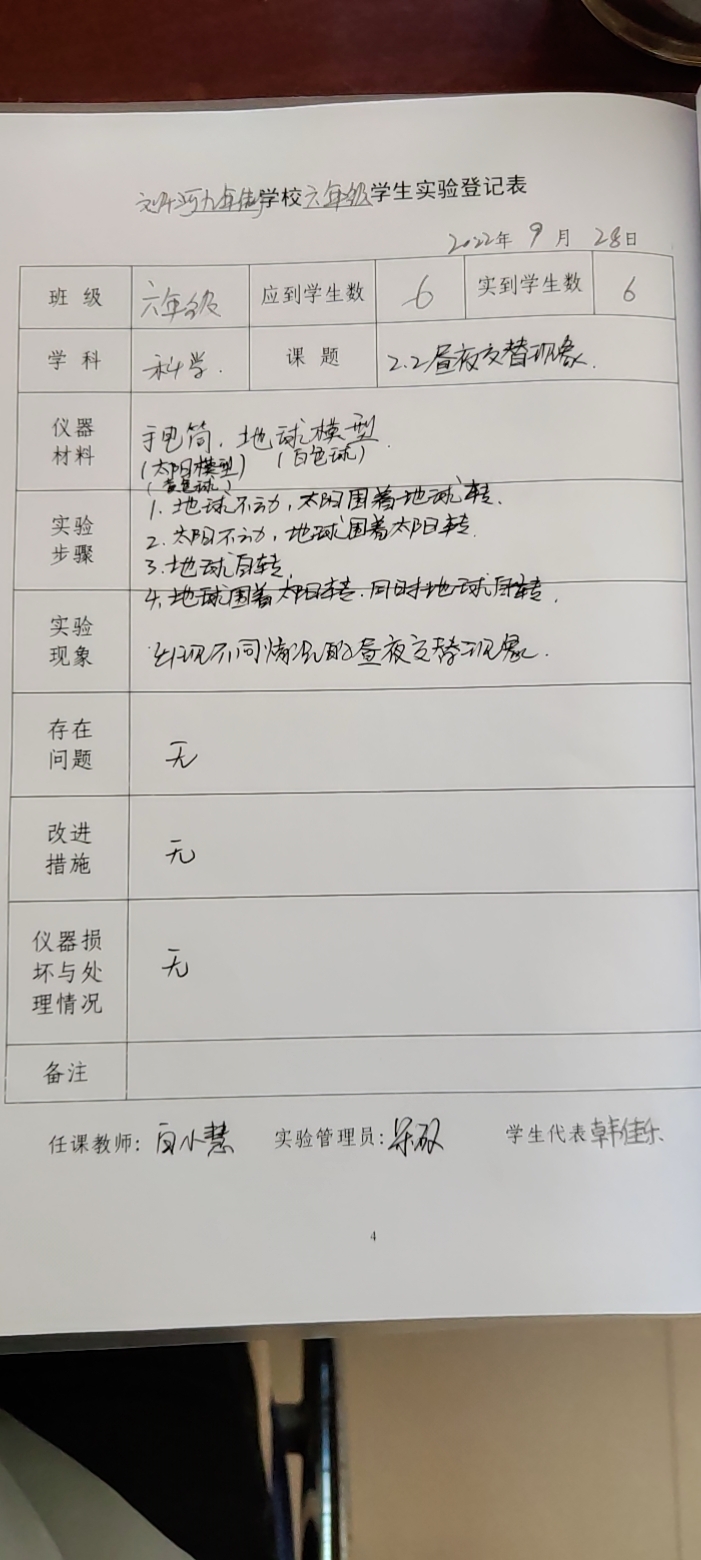 九年制学校六年级学生实验登记表
2022年 9 月 28日
班 级 六年级 应到学生数 6 实到学生数 6
学 科 科学. 课 题 2.2昼夜交替现象.
仪器
材料
手电筒, 地球模型.
(太阳模型) (白色球)
(黄色球)
实验
步骤
1. 地球不动, 太阳围着地球转.
2. 太阳不动, 地球围着太阳转.
3. 地球自转.
4. 地球围着太阳转. 同时地球自转.
实验
现象
出现不同情况的昼夜交替现象.
存在
问题
无
改进
措施
无
仪器损
坏与处
理情况
无
备注
任课教师: 白小慧 实验管理员: 学生代表 韩佳乐
4